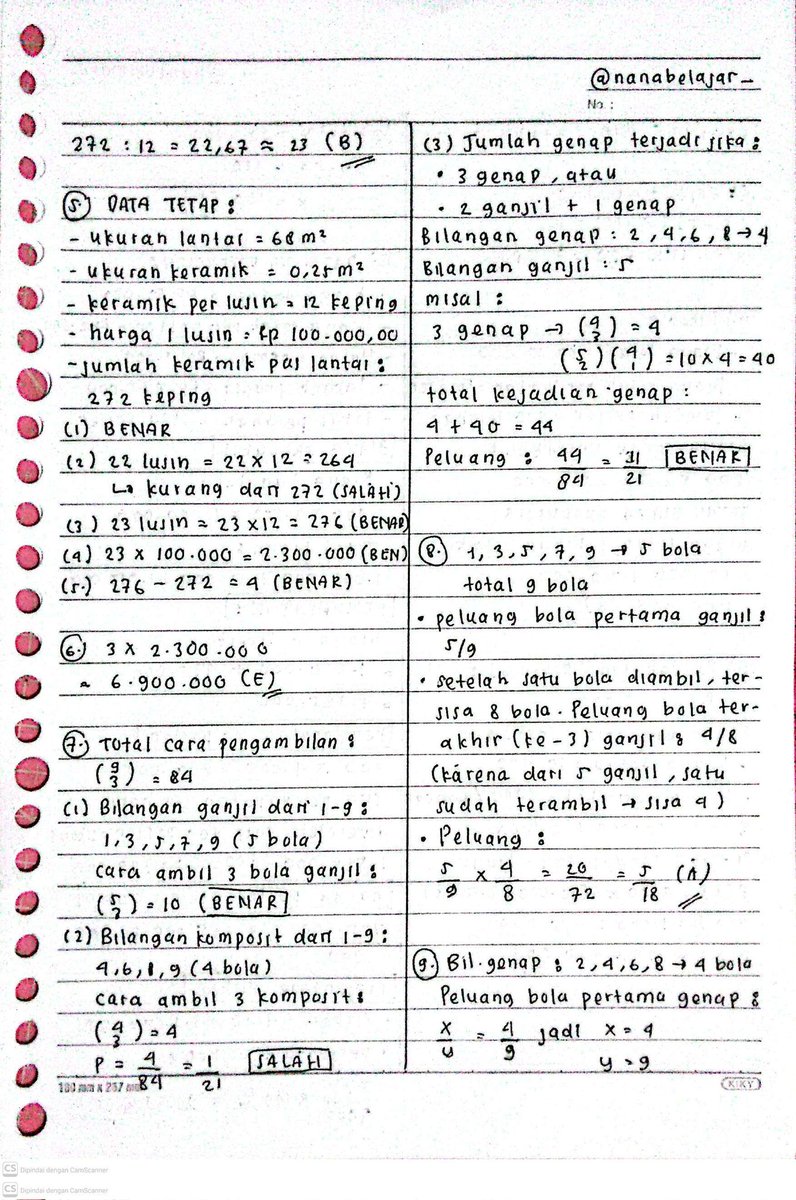 @nanabelajar_
No :
272 : 12 = 22,67 ≈ 23 (B)
5. DATA TETAP :
- ukuran lantai = 68 m²
- ukuran keramik = 0,25 m²
- keramik per lusin = 12 keping
- harga 1 lusin = Rp 100.000,00
- jumlah keramik pas lantai :
272 keping
(1) BENAR
(2) 22 lusin = 22 x 12 = 264
↳ kurang dari 272 (SALAH)
(3) 23 lusin = 23 x 12 = 276 (BENAR)
(4) 23 x 100.000 = 2.300.000 (BEN)
(5.) 276 - 272 = 4 (BENAR)
6. 3 x 2.300.000
= 6.900.000 (E)
7. Total cara pengambilan :
(9 3) = 84
(1) Bilangan ganjil dari 1-9 :
1, 3, 5, 7, 9 (5 bola)
cara ambil 3 bola ganjil :
(5 3) = 10 (BENAR)
(2) Bilangan komposit dari 1-9 :
4, 6, 8, 9 (4 bola)
cara ambil 3 komposit :
(4 3) = 4
P = 4/84 = 1/21 SALAH
(3) Jumlah genap terjadi jika :
• 3 genap, atau
• 2 ganjil + 1 genap
Bilangan genap : 2, 4, 6, 8 → 4
Bilangan ganjil : 5
misal :
3 genap → (4 3) = 4
(5 2)(4 1) = 10 x 4 = 40
total kejadian genap :
4 + 40 = 44
Peluang : 44/84 = 31/21 BENAR
8. 1, 3, 5, 7, 9 → 5 bola
total 9 bola
• peluang bola pertama ganjil :
5/9
• setelah satu bola diambil, ter-
sisa 8 bola. Peluang bola ter-
akhir (ke-3) ganjil : 4/8
(karena dari 5 ganjil, satu
sudah terambil → sisa 4)
• Peluang :
5/9 x 4/8 = 20/72 = 5/18 (A)
9. Bil. genap : 2, 4, 6, 8 → 4 bola
Peluang bola pertama genap :
x/y = 4/9 jadi x = 4
y = 9
KIKY
CS Dipindai dengan CamScanner
CS Dipindai dengan CamScanner